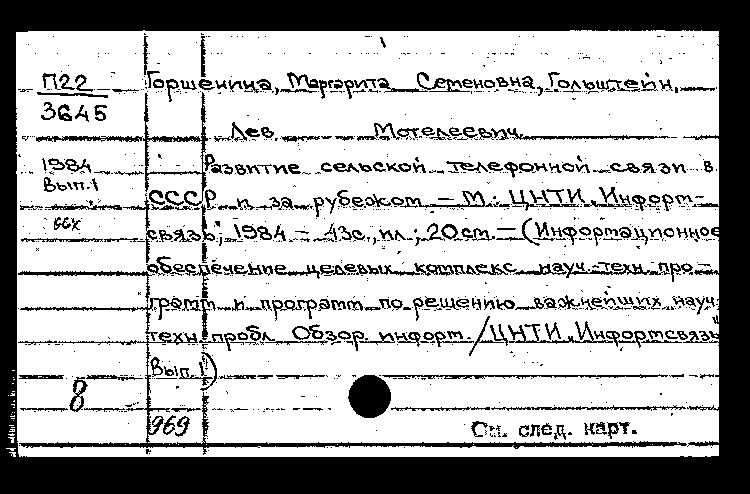 П22 Горшенина, Маргарита Семеновна, Гольштейн,
3645
Лев Мотелеевич
1984 Развитие сельской телефонной связи в
Вып.1
СССР и за рубежом – М.: ЦНТИ „Информ-
66X
связь", 1984 – 43с., ил.; 20см – (Информационное
обеспечение целевых комплекс. науч-техн. про-
грамм и программ по решению важнейших науч.
техн. пробл. Обзор. информ. / ЦНТИ „Информсвязь"
Вып. 1)
8
969 См. след. карт.